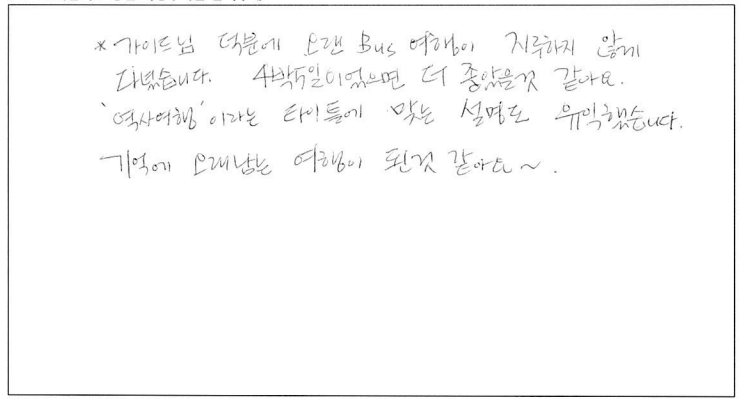 * 가이드님 덕분에 오랜 Bus 여행이 지루하지 않게
다녔습니다. 4박5일이었으면 더 좋았을것 같아요.
'역사여행'이라는 타이틀에 맞는 설명도 유익했습니다.
기억에 오래남는 여행이 된것 같아요~.